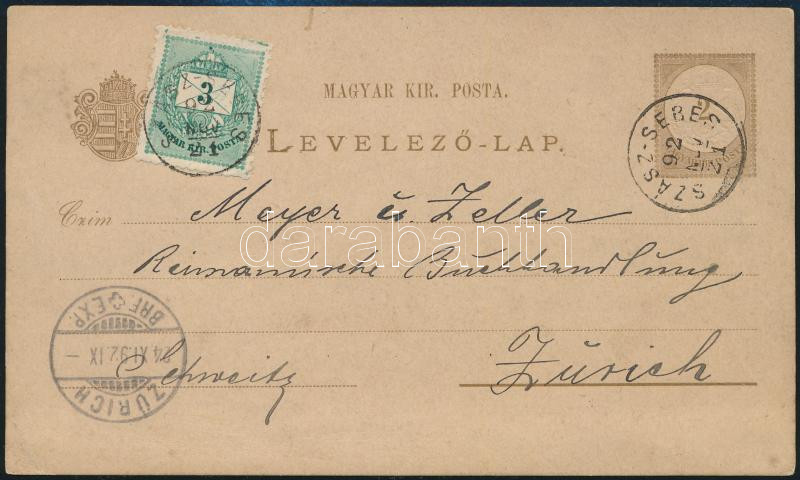 MAGYAR KIR. POSTA.
LEVELEZŐ-LAP.
3
MAGYAR KIR. POSTA
2
SZÁSZ-SEBES
92
NOV
21
Czím
Meyer & Zeller
Reimanische Buchhandlung
Schweitz
Zürich
BRF. EXP.
24 XI.92.IX –
ZÜRICH
darabanth